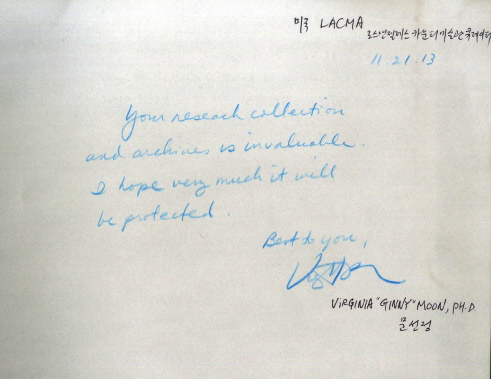 미국 LACMA
로스앤젤레스 카운티미술관 큐레이터
11.21.13
Your reseach collection
and archives is invaluable.
I hope very much it will
be protected.
Best to you,
VIRGINIA "GINNY" MOON, PH.D.
문선정